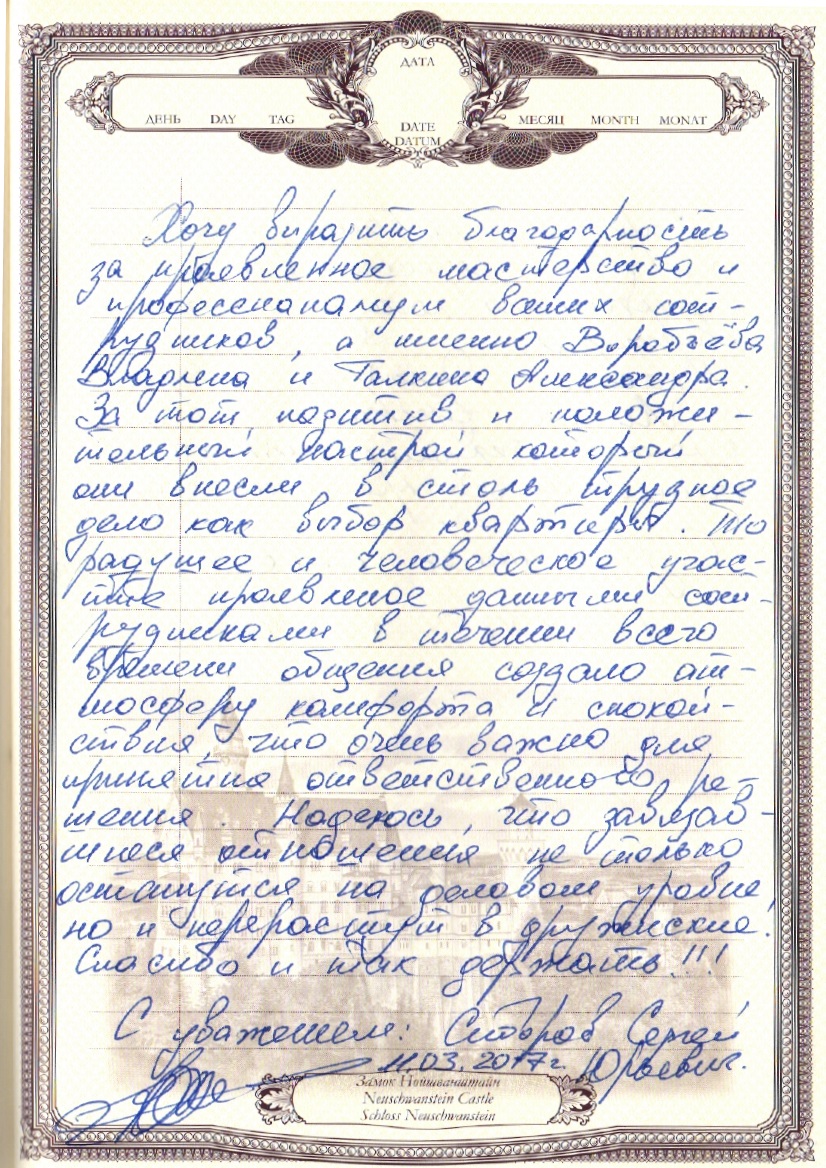 ДАТА
ДЕНЬ DAY TAG
DATE
DATUM
МЕСЯЦ MONTH MONAT
Хочу выразить благодарность
за проявленное мастерство и
професианализм ваших сот-
рудников, а именно Воробьёва
Владлена и Галкина Александра.
За тот позитив и положи-
тельный настрой который
они внесли в столь трудное
дело как выбор квартиры. То
радушее и человеческое учас-
тие проявленое данными сот-
рудниками в течении всего
времени общения создало ат-
мосферу комфорта и спокой-
ствия, что очень важно для
принятия ответственного ре-
шения. Надеюсь, что завязав-
шиеся отношения не только
останутся на деловом уровне,
но и перерастут в дружиские.
Спасибо и так держать!!!
С уважением: Сергей
11.03.2017г. Юрьевич.
Замок Нойшванштайн
Neuschwanstein Castle
Schloss Neuschwanstein